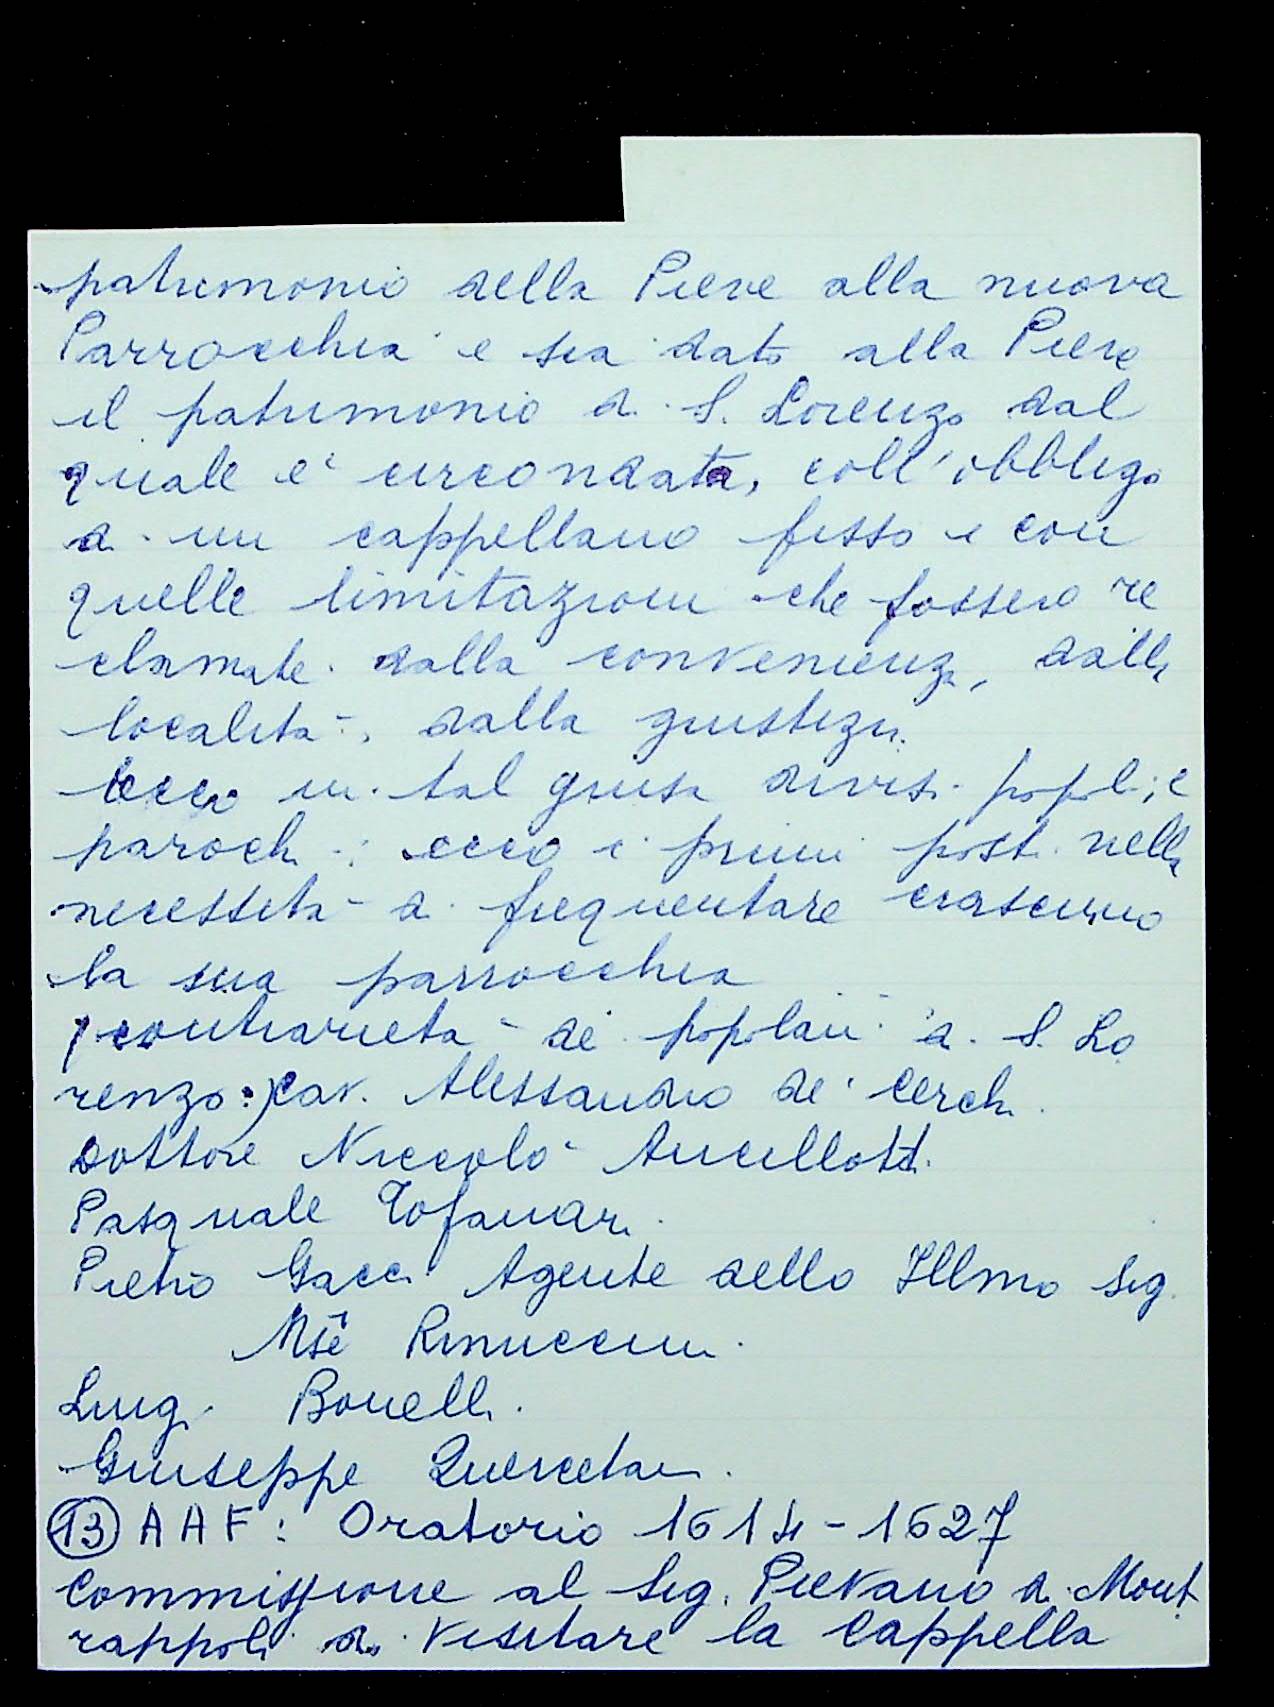 patrimonio della Pieve alla nuova
Parrocchia e sia dato alla Pieve
il patrimonio di S. Lorenzo dal
quale è circondata, coll'obbligo
di un cappellano fisso e con
quelle limitazioni che fossero re
clamate dalla convenienza, dalla
località, dalla giustizia.
Ecco in tal guisa divisi popoli, e
parochi: ecco i primi posti nella
necessità di frequentare ciascuno
la sua parrocchia
contrarietà dei popolani di S. Lo
renzo:) Cav. Alessandro de' Cerchi
Dottore Niccolò Ancillotti
Pasquale Tofanari
Pietro Gacci Agente dello Illmo Sig.
Mse Rinuccini
Luigi Bonelli
Giuseppe Quercetani
13 AAF: Oratorio 1614-1627
Commissione al Sig. Pievano di Mont
rappoli di visitare la cappella